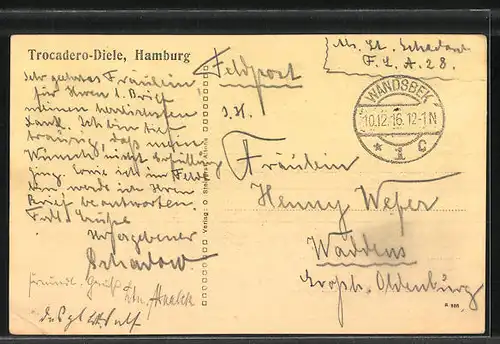 Trocadero-Diele, Hamburg
Sehr geehrtes Fräulein
für Ihren l. Brief
meinen herzlichsten
Dank. Ich bin tief
traurig, daß mein
Wunsch nicht Erfüllung
ging. Wenn ich im Felde
bin werde ich Ihren
Brief beantworten.
Frdl. Grüße
Ihr ergebener
Schadow.
freundl. Gruß
Verlag: O.
Feldpost
Abs. Lt. Schadow
F. L. A. 28.
WANDSBEK
10.12.16.12-1N
* 1 c
z. Zt.
Fräulein
Henny Wefer
Waddens
Großh. Oldenburg